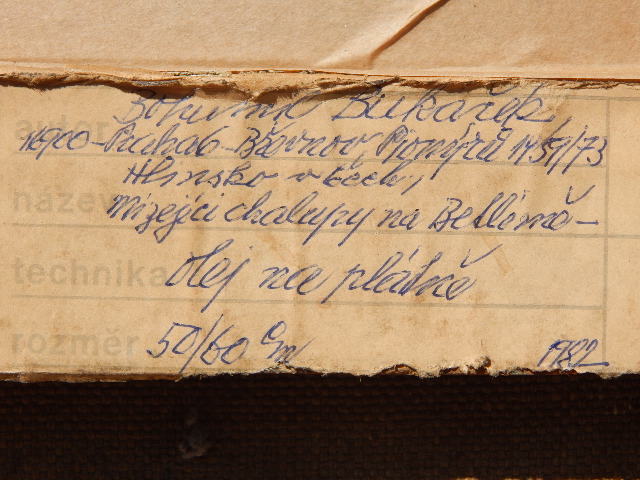 autor Bohumil Bukáček
16900-Praha 6-Břevnov, Pionýrů 1451/73
Hlinsko v Čech.,
název Mizející chalupy na Betlémě-
technika olej na plátně
rozměr 50/60 cm 1982